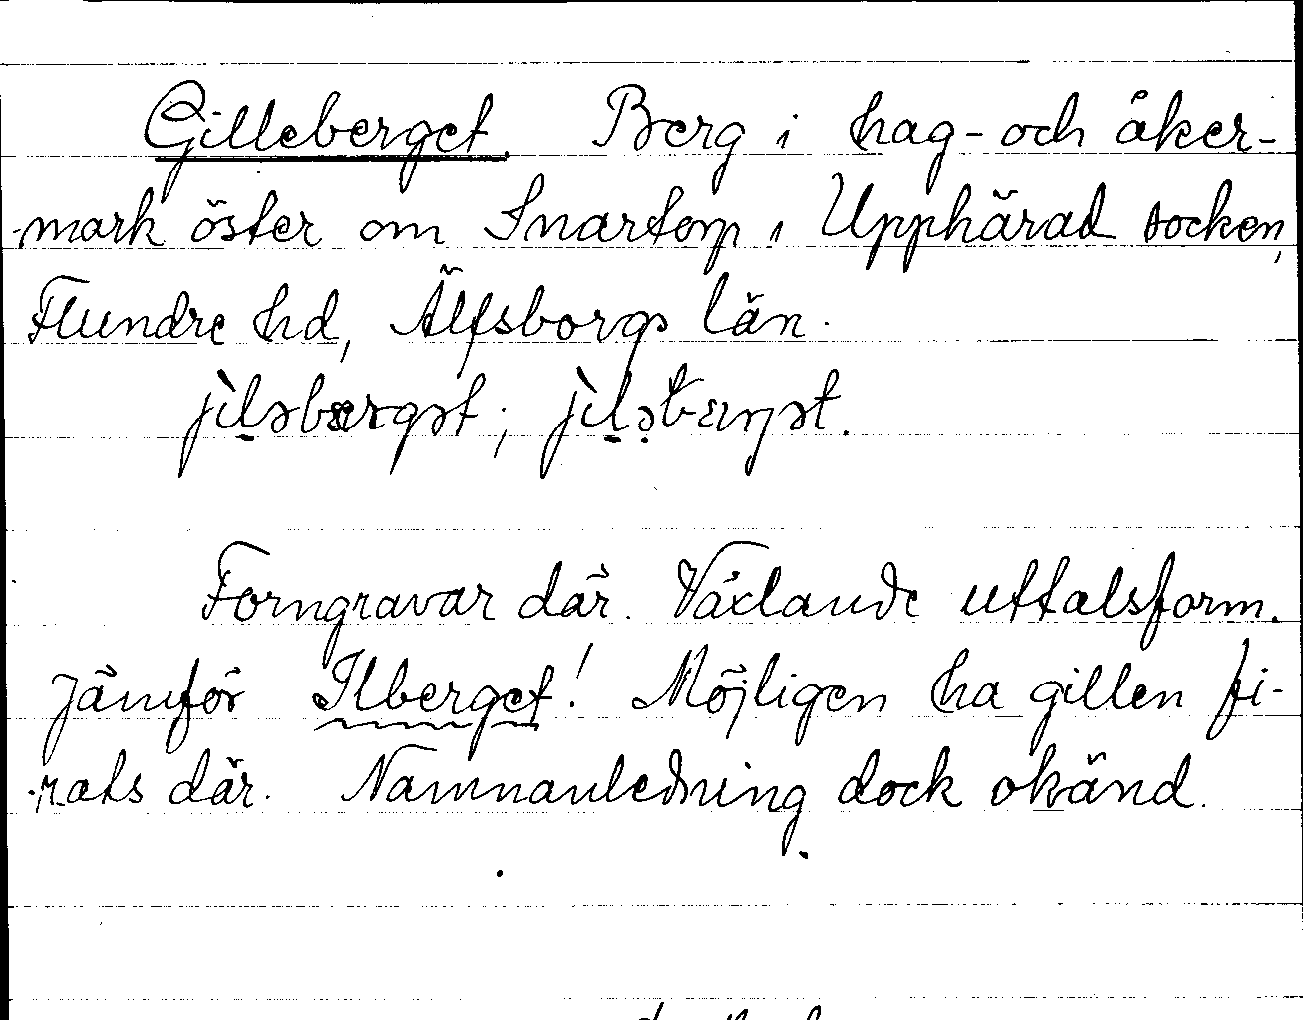 Gilleberget. Berg i hag- och åker-
mark öster om Snartorp i Upphärad socken,
Flundre hd, Älfsborgs län.
jìləbærgət; jìləbærgət.
Forngravar där. Växlande uttalsform.
Jämför Ilberget! Möjligen ha gillen fi-
rats där. Namnanledning dock okänd.